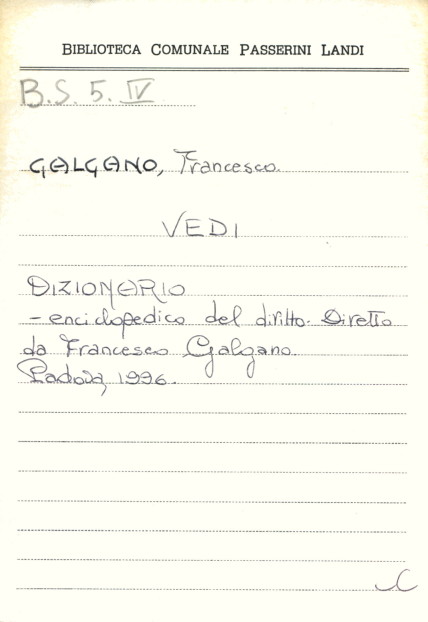 BIBLIOTECA COMUNALE PASSERINI LANDI
B.S. 5. IV
GALGANO, Francesco.
VEDI
DIZIONARIO
- enciclopedico del diritto. Diretto
da Francesco Galgano.
Padova, 1996.